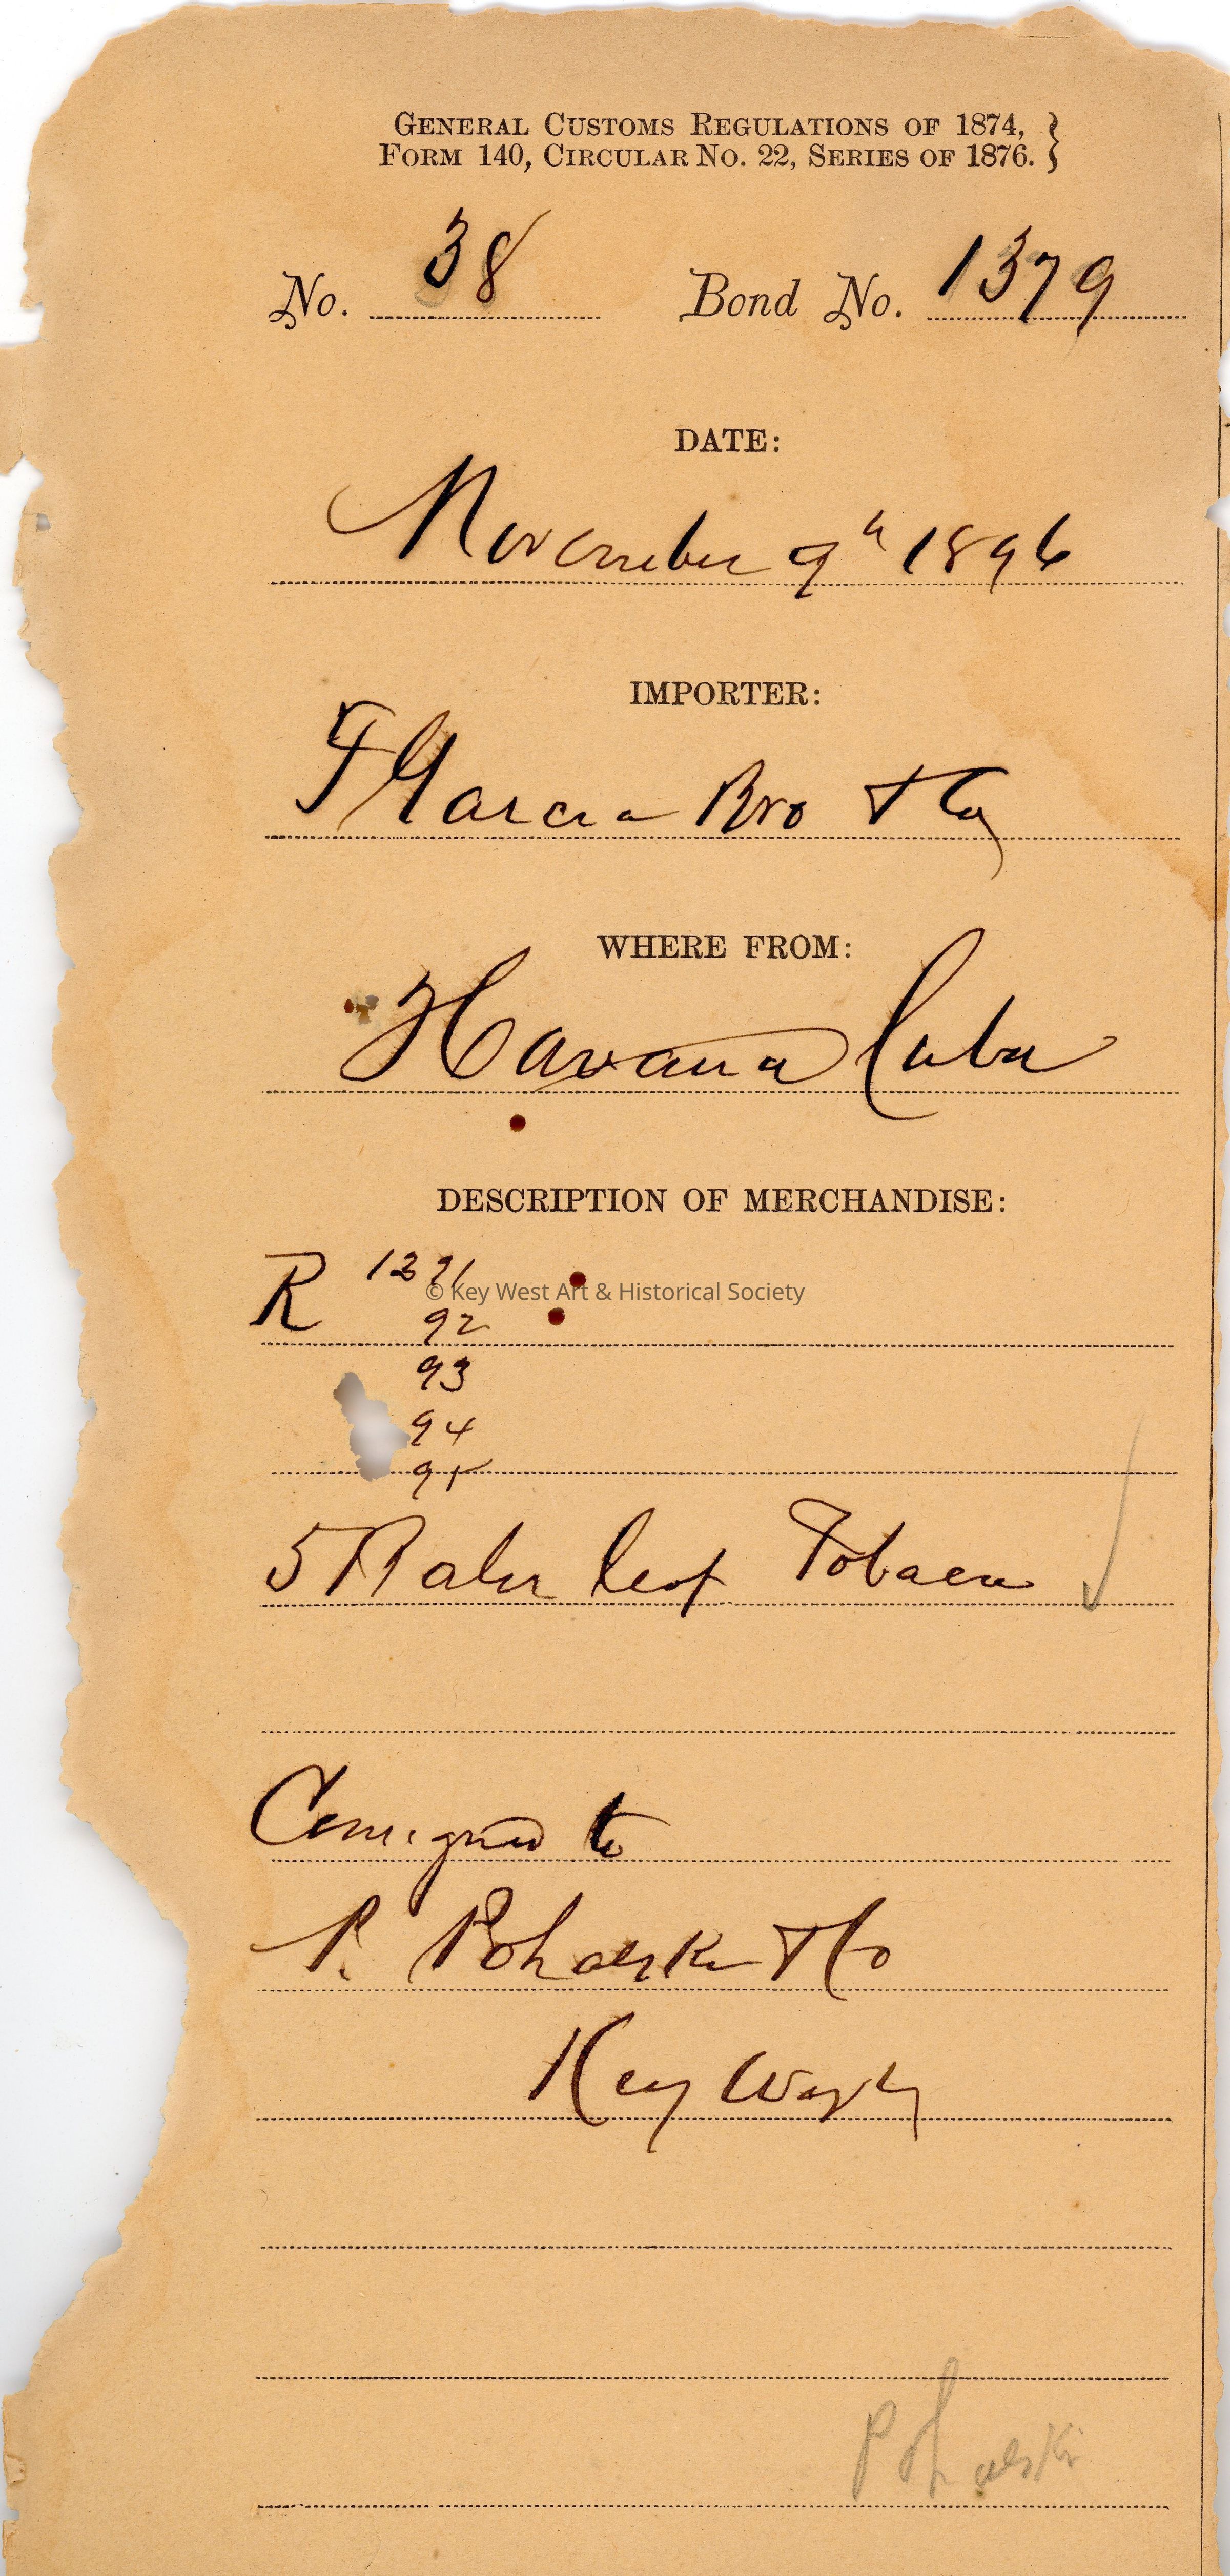 GENERAL CUSTOMS REGULATIONS OF 1874,
FORM 140, CIRCULAR NO. 22, SERIES OF 1876. }
No. 38 Bond No. 1379
DATE:
November 9th 1896
IMPORTER:
F Garcia Bro & Co
WHERE FROM:
Havana Cuba
DESCRIPTION OF MERCHANDISE:
R 1291
© Key West Art & Historical Society
92
93
94
95
5 Bales leaf Tobacco
Consigned to
P. Pohalski & Co
Key West
Pohalski